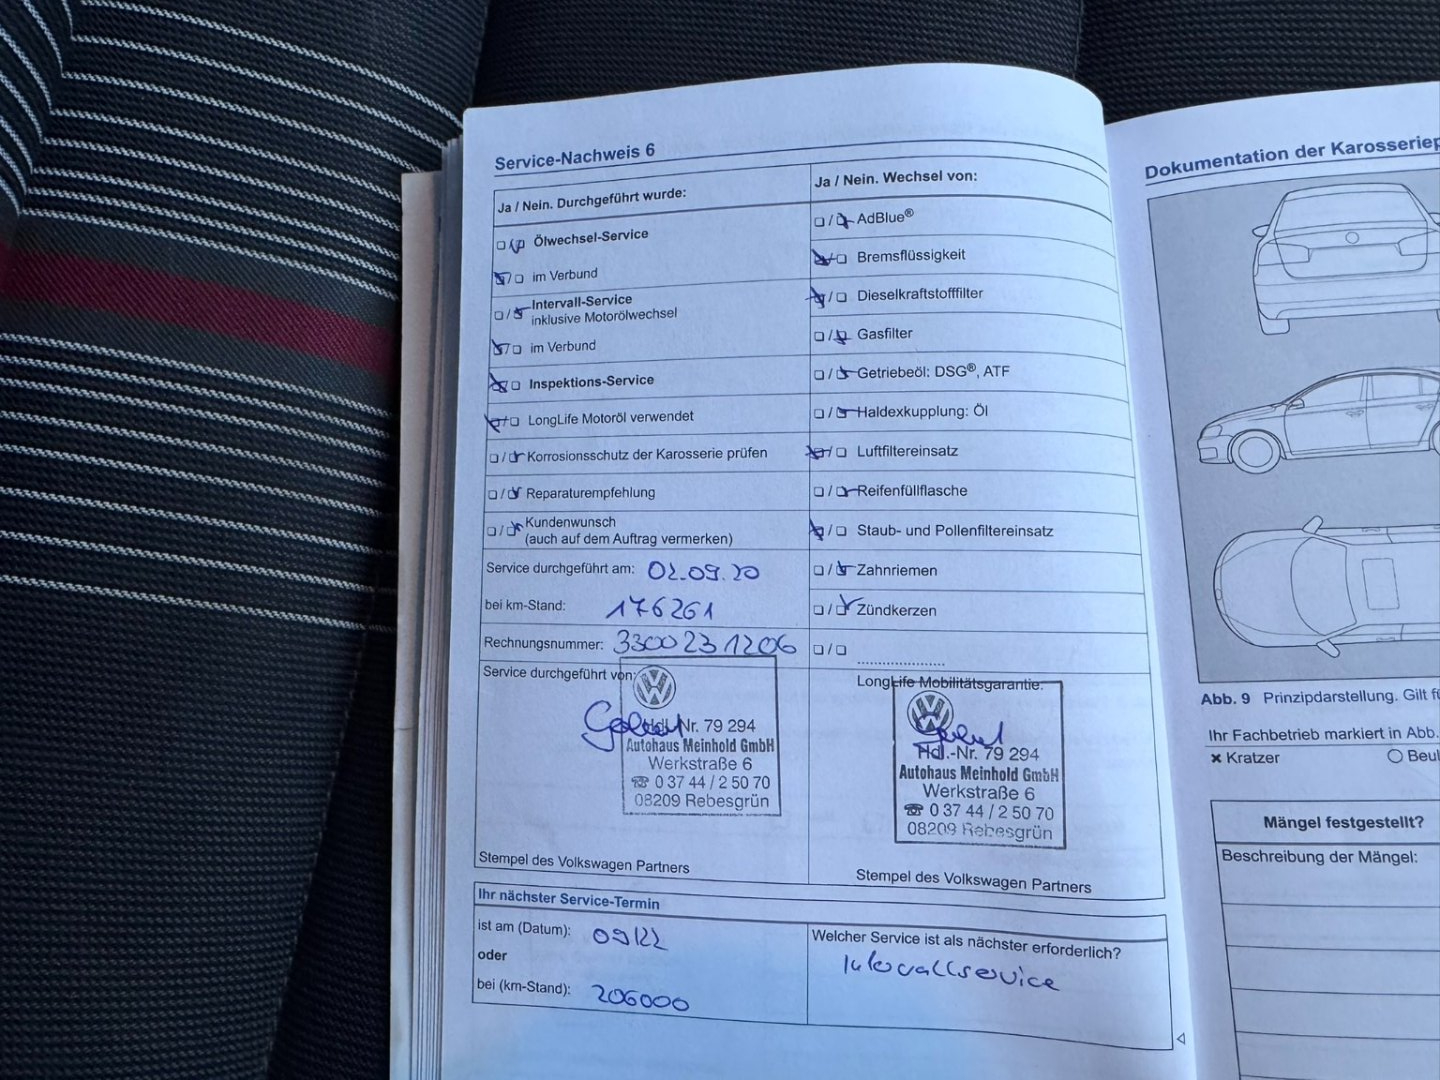 Service-Nachweis 6
Ja / Nein. Durchgeführt wurde:
Ölwechsel-Service
im Verbund
Intervall-Service
inklusive Motorölwechsel
im Verbund
Inspektions-Service
LongLife Motoröl verwendet
Korrosionsschutz der Karosserie prüfen
Reparaturempfehlung
Kundenwunsch
(auch auf dem Auftrag vermerken)
Service durchgeführt am: 02.09.20
bei km-Stand: 176261
Rechnungsnummer: 3300231206
Service durchgeführt von:
Hdl.-Nr. 79 294
Autohaus Meinhold GmbH
Werkstraße 6
☎ 0 37 44 / 2 50 70
08209 Rebesgrün
Stempel des Volkswagen Partners
Ja / Nein. Wechsel von:
AdBlue®
Bremsflüssigkeit
Dieselkraftstofffilter
Gasfilter
Getriebeöl: DSG®, ATF
Haldexkupplung: Öl
Luftfiltereinsatz
Reifenfüllflasche
Staub- und Pollenfiltereinsatz
Zahnriemen
Zündkerzen
LongLife Mobilitätsgarantie:
Hdl.-Nr. 79 294
Autohaus Meinhold GmbH
Werkstraße 6
☎ 0 37 44 / 2 50 70
08209 Rebesgrün
Stempel des Volkswagen Partners
Ihr nächster Service-Termin
ist am (Datum): 09/22
oder
bei (km-Stand): 206000
Welcher Service ist als nächster erforderlich?
Intervallservice
Dokumentation der
Abb. 9 Prinzipdarstellung. Gilt
Ihr Fachbetrieb markiert in Abb.
Kratzer
Mängel festgestellt?
Beschreibung der Mängel: